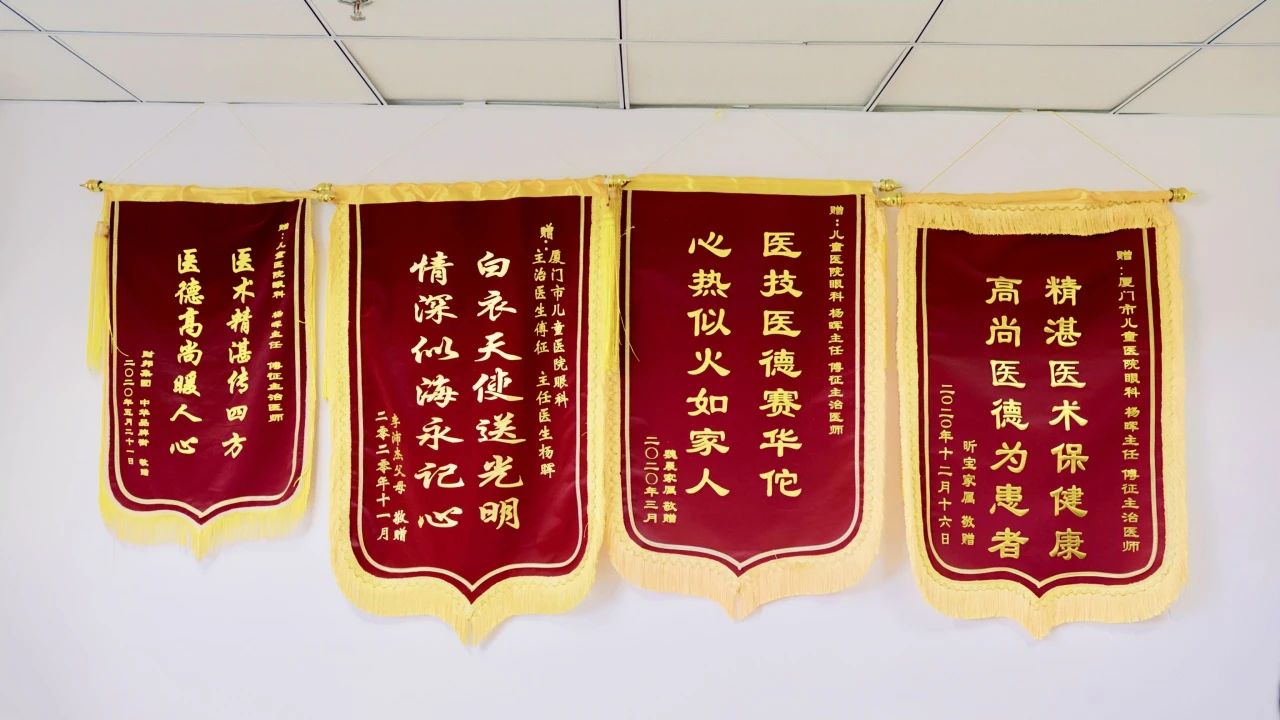 赠：儿童医院眼科 杨晖主任 傅征主治医师
医术精湛传四方
医德高尚暖人心
中华品牌街 敬赠
二〇二〇年五月二十一日
赠：厦门市儿童医院眼科
主治医生傅征 主任医生杨晖
白衣天使送光明
情深似海永记心
李沛杰父母 敬赠
二零二零年十一月
赠：儿童医院眼科 杨晖主任 傅征主治医师
医技医德赛华佗
心热似火如家人
家属 敬赠
二〇二〇年三月
赠：厦门市儿童医院眼科 杨晖主任 傅征主治医师
精湛医术保健康
高尚医德为患者
昕宝家属 敬赠
二〇二〇年十二月十六日